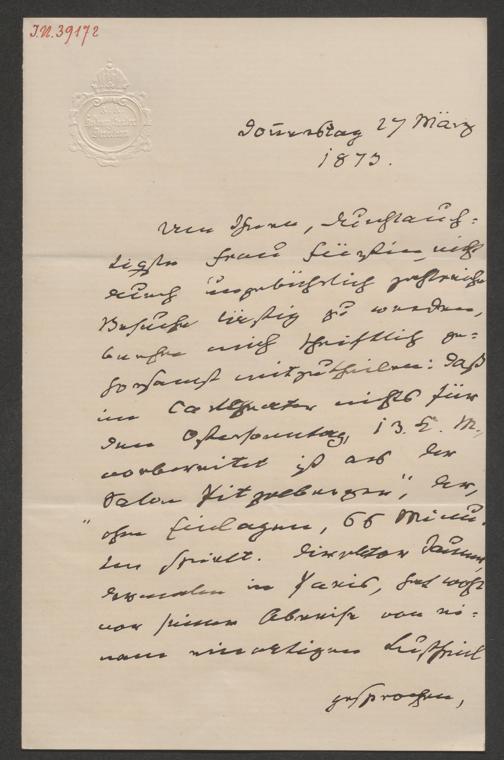 I.N. 39172
Donnerstag 27 März
1873.
Um Ihnen, Durchlauch=
tigste Frau Fürstin, nicht
durch ungebührlich zahlreiche
Besuche lästig zu werden,
mich schriftlich ge=
horsamst mitzutheilen: daß
im Carltheater nichts für
den Ostersonntag, 13. k. M.,
vorbereitet ist als der
"Salon Pitzelberger", der,
ohne Einlagen, 66 Minu=
ten spielt. Direktor Jauner,
dermalen in Paris, hat wohl
vor seiner Abreise von ei=
nem einactigen Lustspiel
gesprochen,